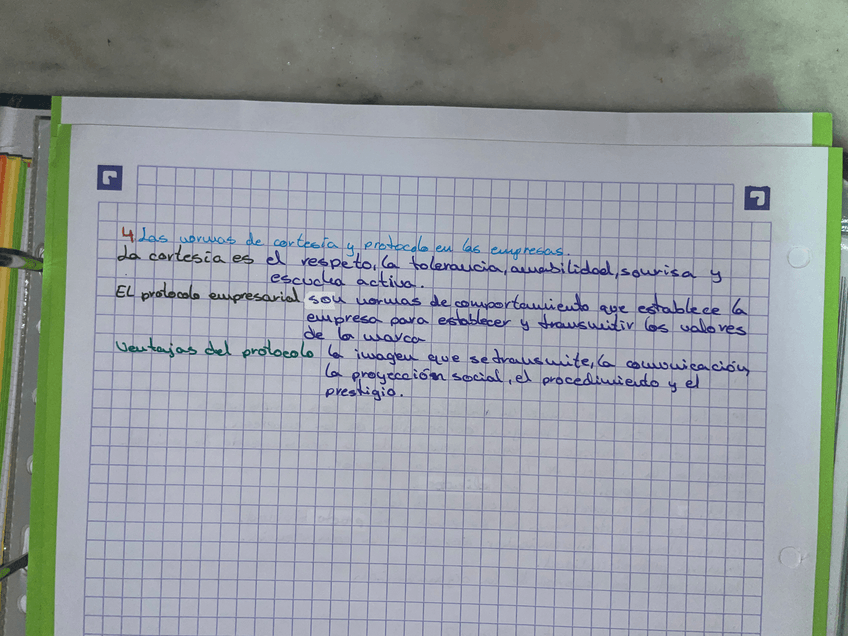 4 Las normas de cortesía y protocolo en las empresas.
La cortesía es el respeto, la tolerancia, amabilidad, sonrisa y
escucha activa.
EL protocolo empresarial son normas de comportamiento que establece la
empresa para establecer y transmitir los valores
de la marca
Ventajas del protocolo la imagen que se transmite, la comunicación,
la proyección social, el procedimiento y el
prestigio.